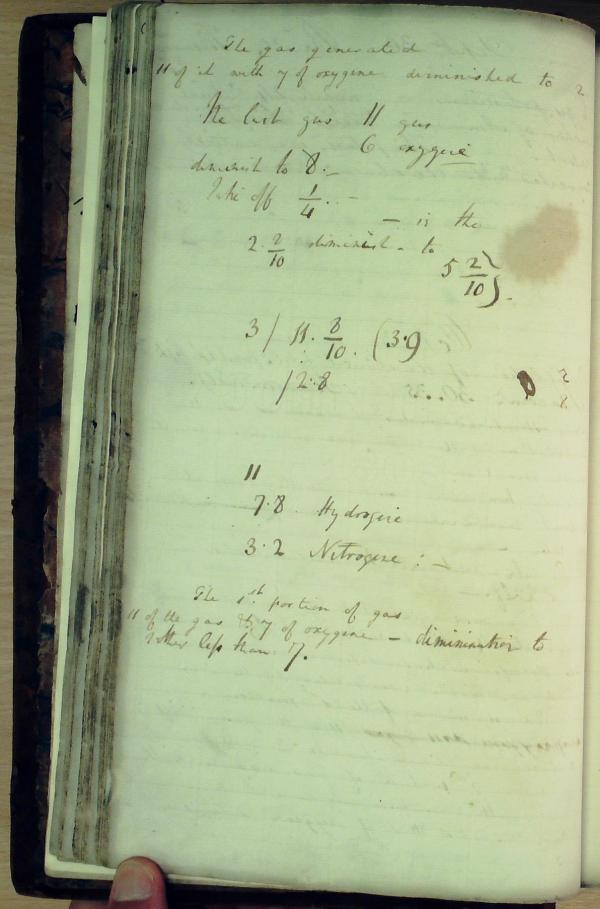 The gas generated
11 of it with 7 of oxygene diminished to
the last gas 11 gas
6 oxygene
diminish to 8.–
Take off 1/4. –
– is the
2. 2/10 diminish – to
5 2/10).
3 / 11. 8/10. (3.9
/ 2.8
11
7.8 Hydrogene
3.2 Nitrogene : –
The 1st portion of gas
11 of the gas & 7 of oxygene – diminination to
rather less than 7.